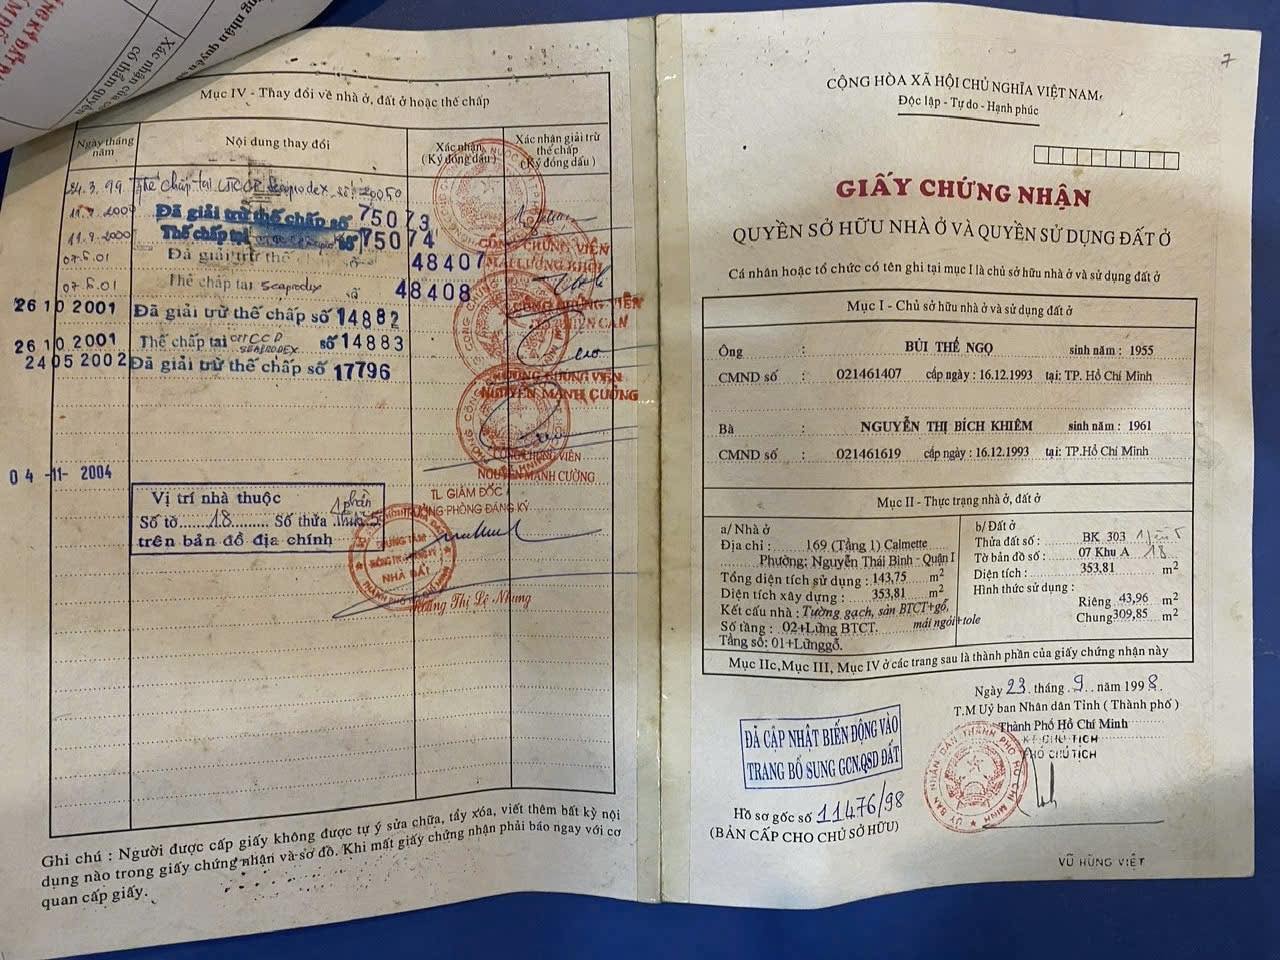 Mục IV - Thay đổi về nhà ở, đất ở hoặc thế chấp
Ngày tháng năm
Nội dung thay đổi
Xác nhận (Ký đóng dấu)
Xác nhận giải trừ thế chấp (Ký đóng dấu)
24.3.99 Thế chấp tại Seaprodex số 20050
11.9.2000 Đã giải trừ thế chấp số 75073
11.9.2000 Thế chấp tại số 75074
07.6.01 Đã giải trừ thế số 48407
07.6.01 Thế chấp tại seaprodex số 48408
26 10 2001 Đã giải trừ thế chấp số 14882
26 10 2001 Thế chấp tại CTCCD SEAPRODEX số 14883
24 05 2002 Đã giải trừ thế chấp số 17796
CÔNG CHỨNG VIÊN
MAI LƯƠNG KHÔI
CÔNG CHỨNG VIÊN
CÔNG CHỨNG VIÊN
NGUYỄN MẠNH CƯỜNG
CÔNG CHỨNG VIÊN
NGUYỄN MẠNH CƯỜNG
04 -11- 2004
Vị trí nhà thuộc
1 phần
Số tờ 18 Số thửa 5
trên bản đồ địa chính
TL GIÁM ĐỐC
TRƯỞNG PHÒNG ĐĂNG KÝ
TRUNG TÂM
NHÀ ĐẤT
Hoàng Thị Lệ Nhung
Ghi chú : Người được cấp giấy không được tự ý sửa chữa, tẩy xóa, viết thêm bất kỳ nội
dung nào trong giấy chứng nhận và sơ đồ. Khi mất giấy chứng nhận phải báo ngay với cơ
quan cấp giấy.
7
CỘNG HÒA XÃ HỘI CHỦ NGHĨA VIỆT NAM
Độc lập - Tự do - Hạnh phúc
GIẤY CHỨNG NHẬN
QUYỀN SỞ HỮU NHÀ Ở VÀ QUYỀN SỬ DỤNG ĐẤT Ở
Cá nhân hoặc tổ chức có tên ghi tại mục I là chủ sở hữu nhà ở và sử dụng đất ở
Mục I - Chủ sở hữu nhà ở và sử dụng đất ở
Ông : BÙI THẾ NGỌ sinh năm : 1955
CMND số : 021461407 cấp ngày : 16.12.1993 tại: TP. Hồ Chí Minh
Bà : NGUYỄN THỊ BÍCH KHIÊM sinh năm : 1961
CMND số : 021461619 cấp ngày : 16.12.1993 tại: TP.Hồ Chí Minh
Mục II - Thực trạng nhà ở, đất ở
a/ Nhà ở
Địa chỉ : 169 (Tầng 1) Calmette
Phường: Nguyễn Thái Bình - Quận I
Tổng diện tích sử dụng : 143,75 m2
Diện tích xây dựng : 353,81 m2
Kết cấu nhà : Tường gạch, sàn BTCT+gỗ,
mái ngói+tole
Số tầng : 02+Lửng BTCT.
Tầng số: 01+Lửnggỗ.
b/ Đất ở
Thửa đất số : BK 303
Tờ bản đồ số : 07 Khu A 18
Diện tích : 353,81 m2
Hình thức sử dụng :
Riêng 43,96 m2
Chung 309,85 m2
Mục IIc, Mục III, Mục IV ở các trang sau là thành phần của giấy chứng nhận này
Ngày 23 tháng 9 năm 1998.
T.M Uỷ ban Nhân dân Tỉnh ( Thành phố )
Thành Phố Hồ Chí Minh
KT CHỦ TỊCH
PHÓ CHỦ TỊCH
ĐÃ CẬP NHẬT BIẾN ĐỘNG VÀO
TRANG BỔ SUNG GCN.QSD ĐẤT
Hồ sơ gốc số 11476/98
(BẢN CẤP CHO CHỦ SỞ HỮU)
VŨ HÙNG VIỆT